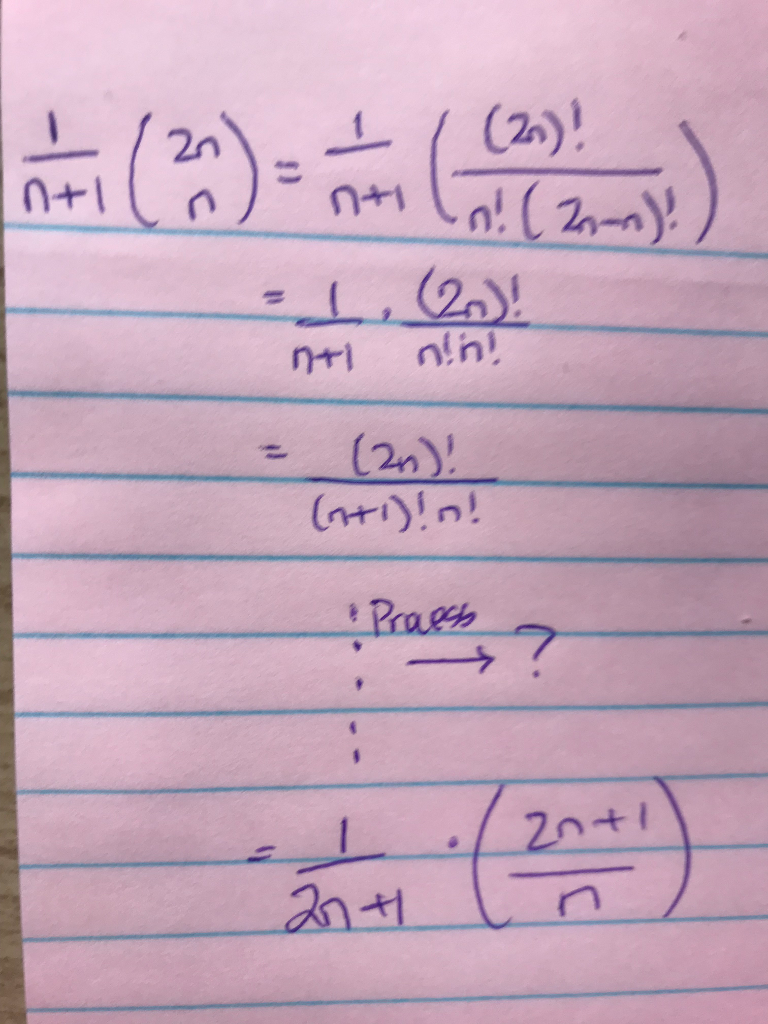 1/(n+1) (2n n) = 1/(n+1) ((2n)!/(n!(2n-n)!))
= 1/(n+1) · (2n)!/(n!n!)
= (2n)!/((n+1)!n!)
⋮ Process → ?
= 1/(2n+1) · ((2n+1)/n)